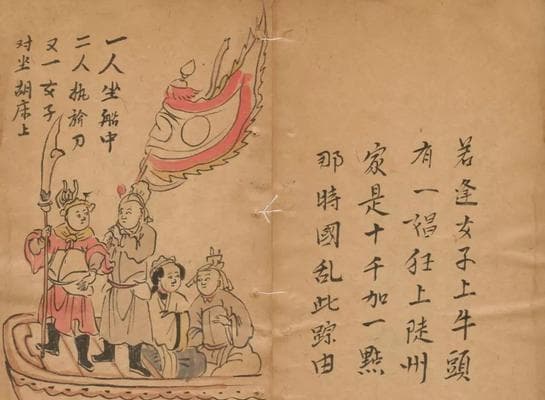 若逢女子上牛頭
有一猖狂上陡州
家是十千加一點
那時國亂此踪由
一人坐船中
二人执刀
又一女子
对坐胡床上